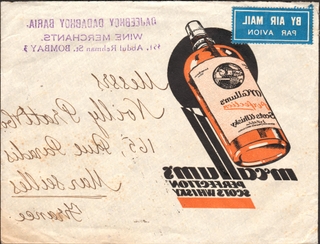 DAJEEBHOY DADABHOY BARIA.
WINE MERCHANTS.
Abdul Rehman St. BOMBAY 3
BY AIR MAIL
PAR AVION
Messrs
Noilly Pratt & Co
165, Rue Paradis
Marseilles
France
McCallum's
Perfection
Scots Whisky
McCallum's
PERFECTION
SCOTS WHISKY